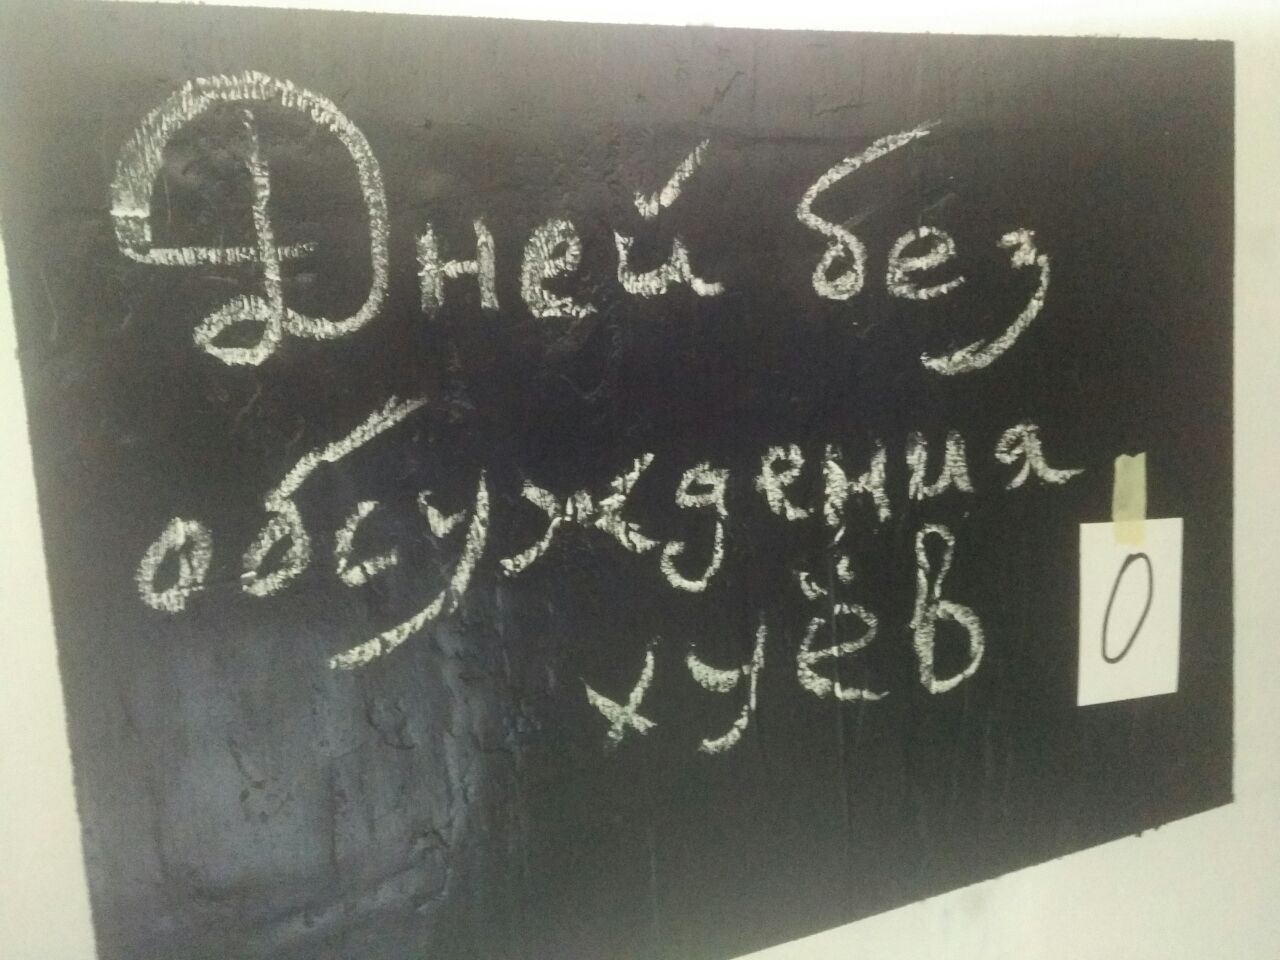 Дней без
обсуждения
хуёв
0